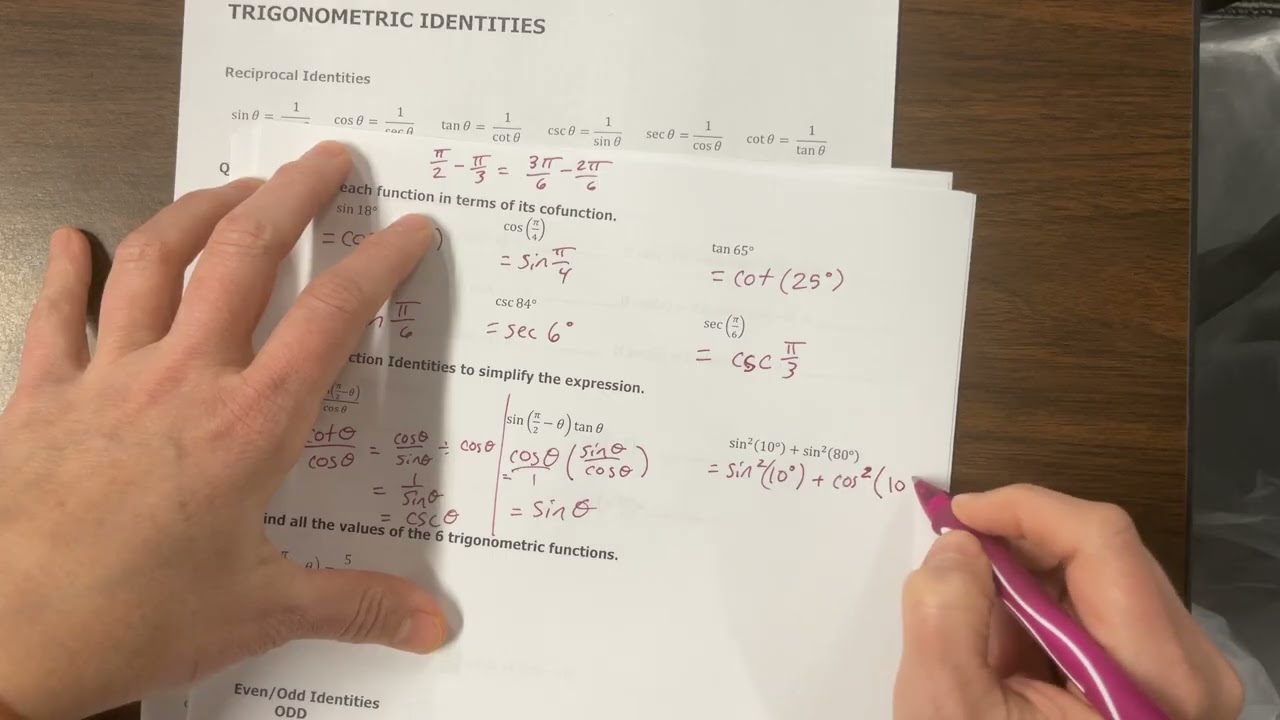 TRIGONOMETRIC IDENTITIES
Reciprocal Identities
sin θ = 1/ cos θ = 1/sec θ tan θ = 1/cot θ csc θ = 1/sin θ sec θ = 1/cos θ cot θ = 1/tan θ
Q
π/2 − π/3 = 3π/6 − 2π/6
each function in terms of its cofunction.
sin 18° cos (π/4) tan 65°
= co ) = sin π/4 = cot (25°)
csc 84° sec (π/6)
π/6 = sec 6° = csc π/3
ction Identities to simplify the expression.
(π/2 − θ)/cos θ sin (π/2 − θ) tan θ sin²(10°) + sin²(80°)
cotθ/cosθ = cosθ/sinθ ÷ cosθ = cosθ/1 (sinθ/cosθ) = sin²(10°) + cos²(10
= 1/sinθ = sinθ
= cscθ
ind all the values of the 6 trigonometric functions.
θ) = 5
Even/Odd Identities
ODD